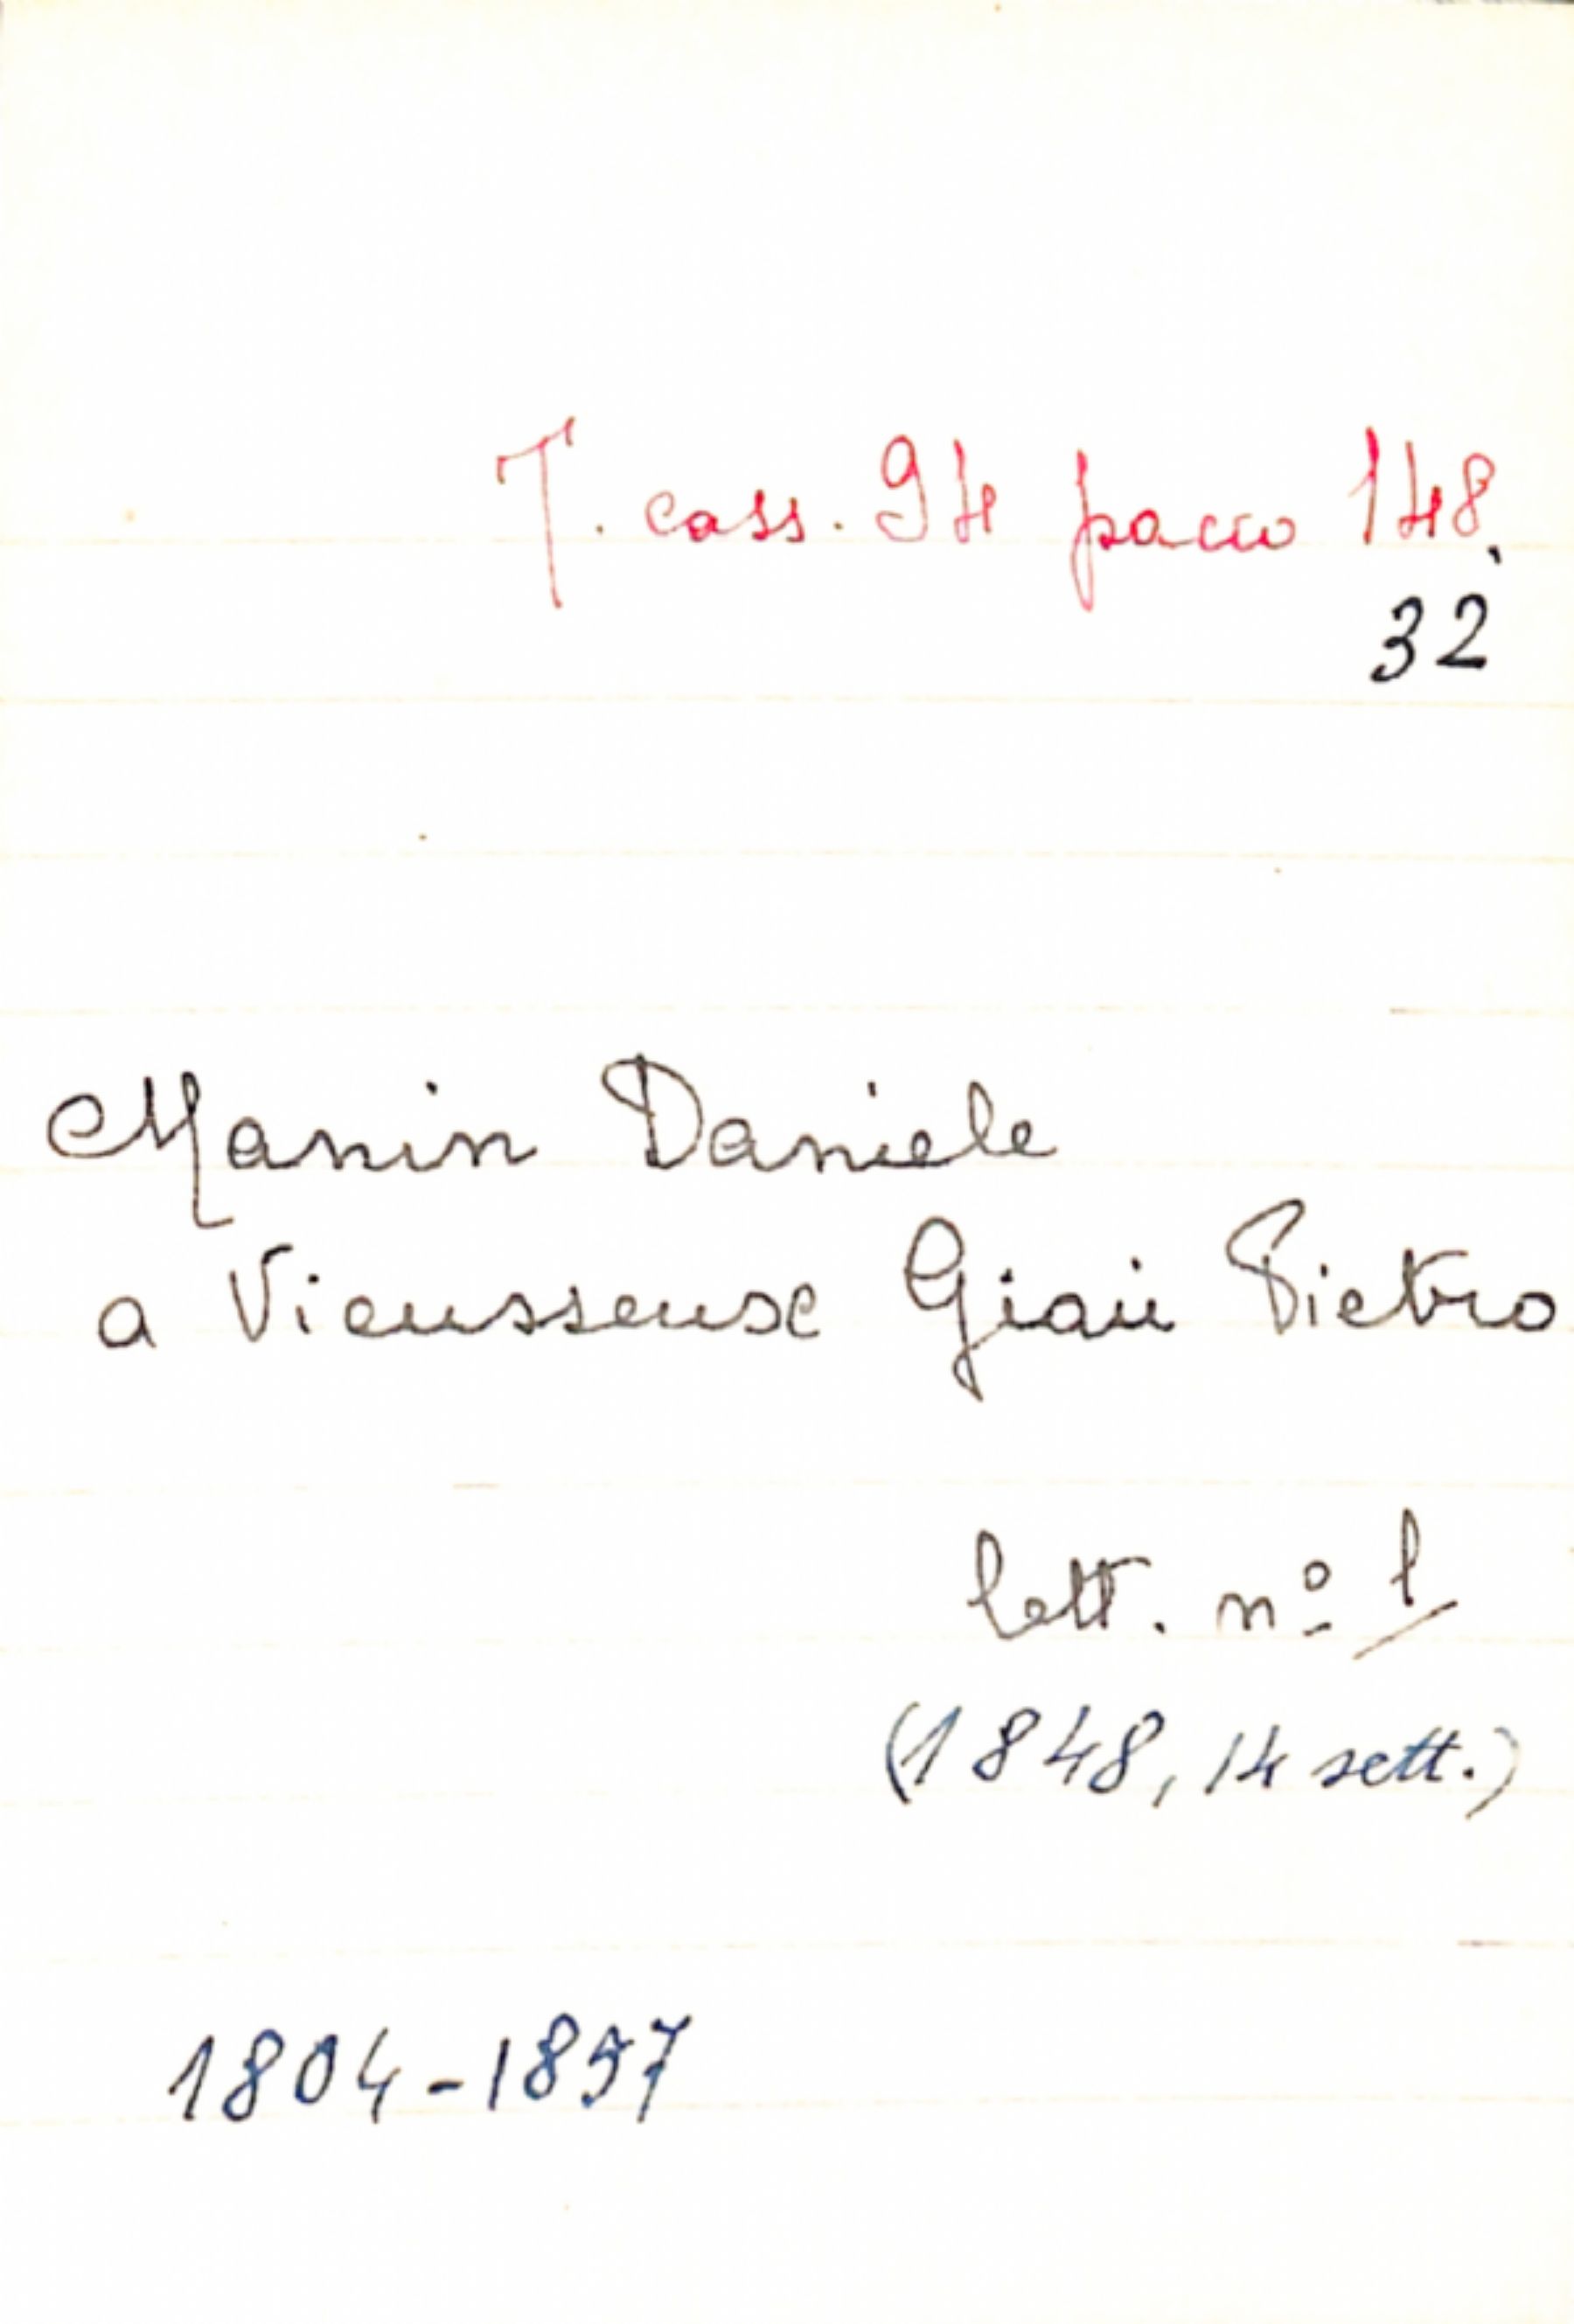 T. cass. 94 pacco 148.
32
Manin Daniele
a Vieusseuse Gian Pietro
lett. nº 1
(1848, 14 sett.)
1804-1857